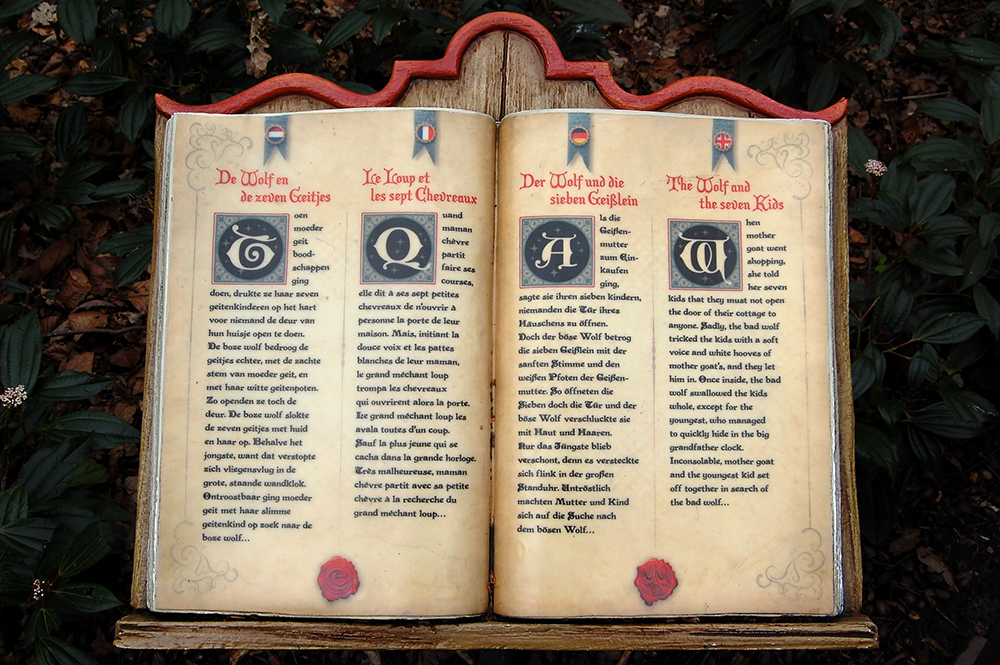 De Wolf en
de zeven Geitjes
Toen
moeder
geit
bood-
schappen
ging
doen, drukte ze haar zeven
geitenkinderen op het hart
voor niemand de deur van
hun huisje open te doen.
De boze wolf bedroog de
geitjes echter, met de zachte
stem van moeder geit, en
met haar witte geitenpoten.
Zo openden ze toch de
deur. De boze wolf slokte
de zeven geitjes met huid
en haar op. Behalve het
jongste, want dat verstopte
zich vliegensvlug in de
grote, staande wandklok.
Ontroostbaar ging moeder
geit met haar slimme
geitenkind op zoek naar de
boze wolf...
Le Loup et
les sept Chevreaux
Quand
maman
chèvre
partit
faire ses
courses,
elle dit à ses sept petites
chevreaux de n'ouvrir à
personne la porte de leur
maison. Mais, initiant la
douce voix et les pattes
blanches de leur maman,
le grand méchant loup
trompa les chevreaux
qui ouvrirent alors la porte.
Le grand méchant loup les
avala toutes d'un coup.
Sauf la plus jeune qui se
cacha dans la grande horloge.
Très malheureuse, maman
chèvre partit avec sa petite
chèvre à la recherche du
grand méchant loup...
Der Wolf und die
sieben Geißlein
Als die
Geißen-
mutter
zum Ein-
kaufen
ging,
sagte sie ihren sieben kindern,
niemanden die Tür ihres
Häuschens zu öffnen.
Doch der böse Wolf betrog
die sieben Geißlein mit der
sanften Stimme und den
weißen Pfoten der Geißen-
mutter. So öffneten die
Sieben doch die Tür und der
böse Wolf verschluckte sie
mit Haut und Haaren.
Nur das Jüngste blieb
verschont, denn es versteckte
sich flink in der großen
Standuhr. Untröstlich
machten Mutter und Kind
sich auf die Suche nach
dem bösen Wolf...
The Wolf and
the seven Kids
When
mother
goat went
shopping,
she told
her seven
kids that they must not open
the door of their cottage to
anyone. Sadly, the bad wolf
tricked the kids with a soft
voice and white hooves of
mother goat's, and they let
him in. Once inside, the bad
wolf swallowed the kids
whole, except for the
youngest, who managed
to quickly hide in the big
grandfather clock.
Inconsolable, mother goat
and the youngest kid set
off together in search of
the bad wolf...